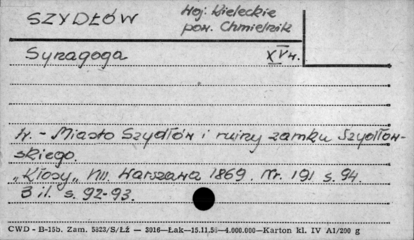 SZYDŁÓW
Woj. Kieleckie
pow. Chmielnik
Synagoga XV w.
W. - Miasto Szydłów i ruiny zamku Szydłow-
skiego.
„Kłosy" VIII. Warszawa 1869. Nr. 191 s. 94.
3 il. s. 92-93.
CWD - B-15b. Zam. 5823/S/ŁŻ — 3016—Łak—15.11.51—4.000.000—Karton kl. IV A1/200 g